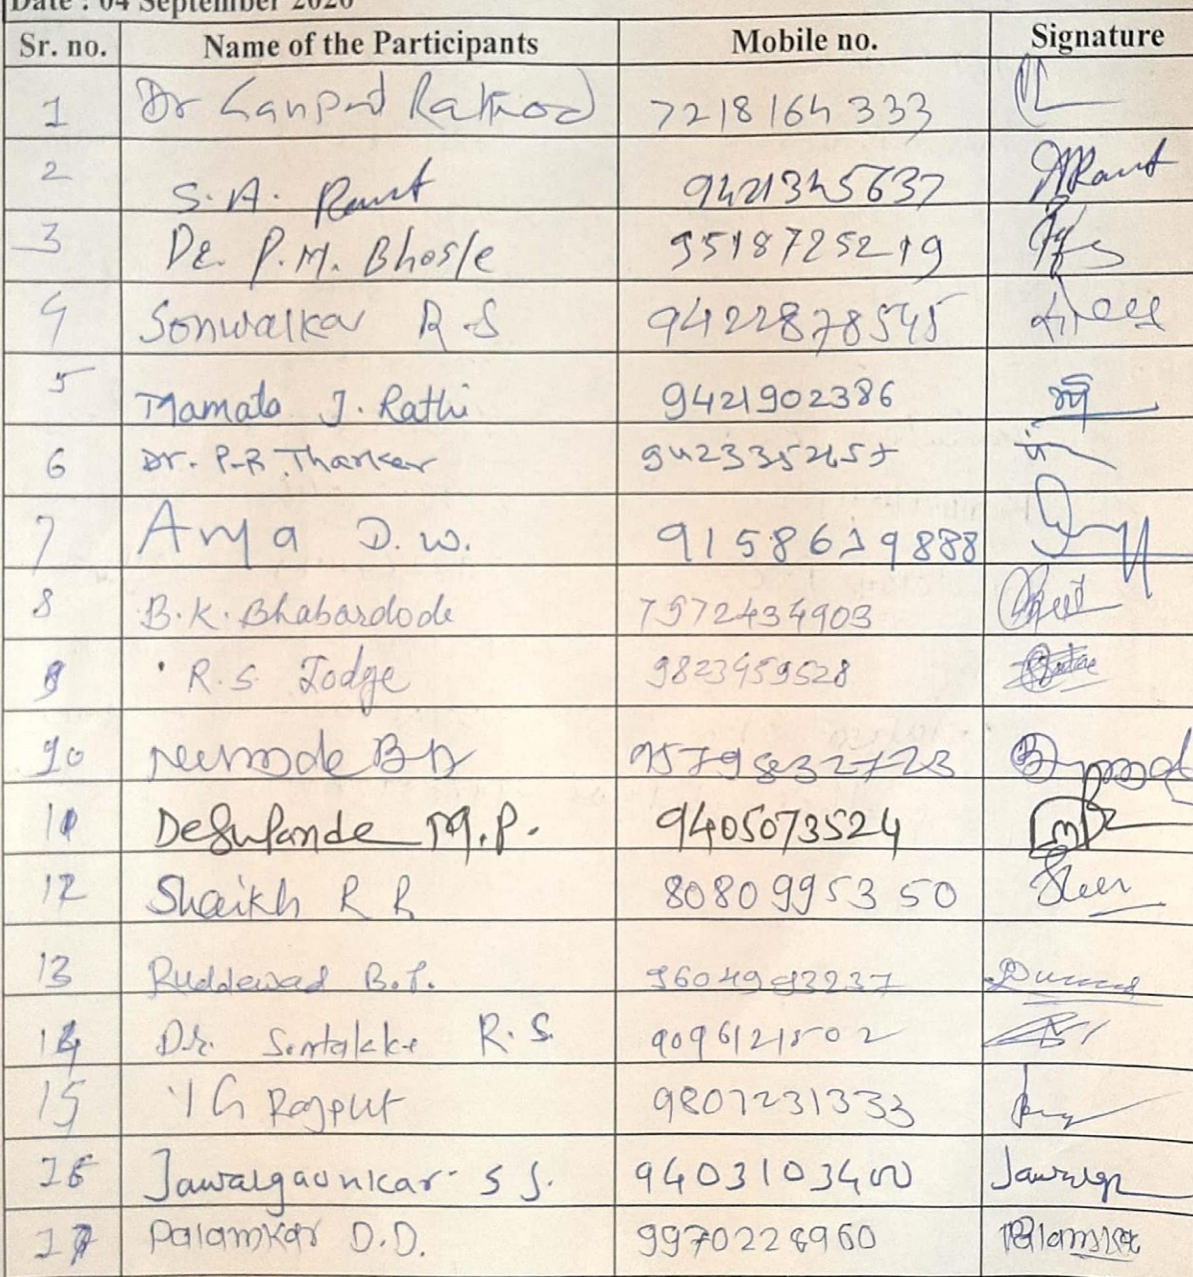 Date : 04 September 2020
Sr. no. Name of the Participants Mobile no. Signature
1 Dr Ganpat Rathod 7218164333
2 S. A. Raut 9421345637 Raut
3 Dr. P. M. Bhosle 9518725219
4 Sonwalkar R S 9422878545
5 Mamata J. Rathi 9421902386
6 Dr. P-R Tharkar
7 Arya D. W. 9158619888
8 B. K. Bhabardode 7972434903
9 R. S. Jodge 9823459528
10 B D 9579832723
11 Deshpande M. P. 9405073524
12 Shaikh R R 8080995350
13 Ruddewad B. P. 9604993237
14 Dr. Sontakke R. S. 9096121502
15 Y G Rajput 9807231333
16 Jawalgaonkar S S. 9403103400
17 Palamkar D. D. 9970228960 Palamkar